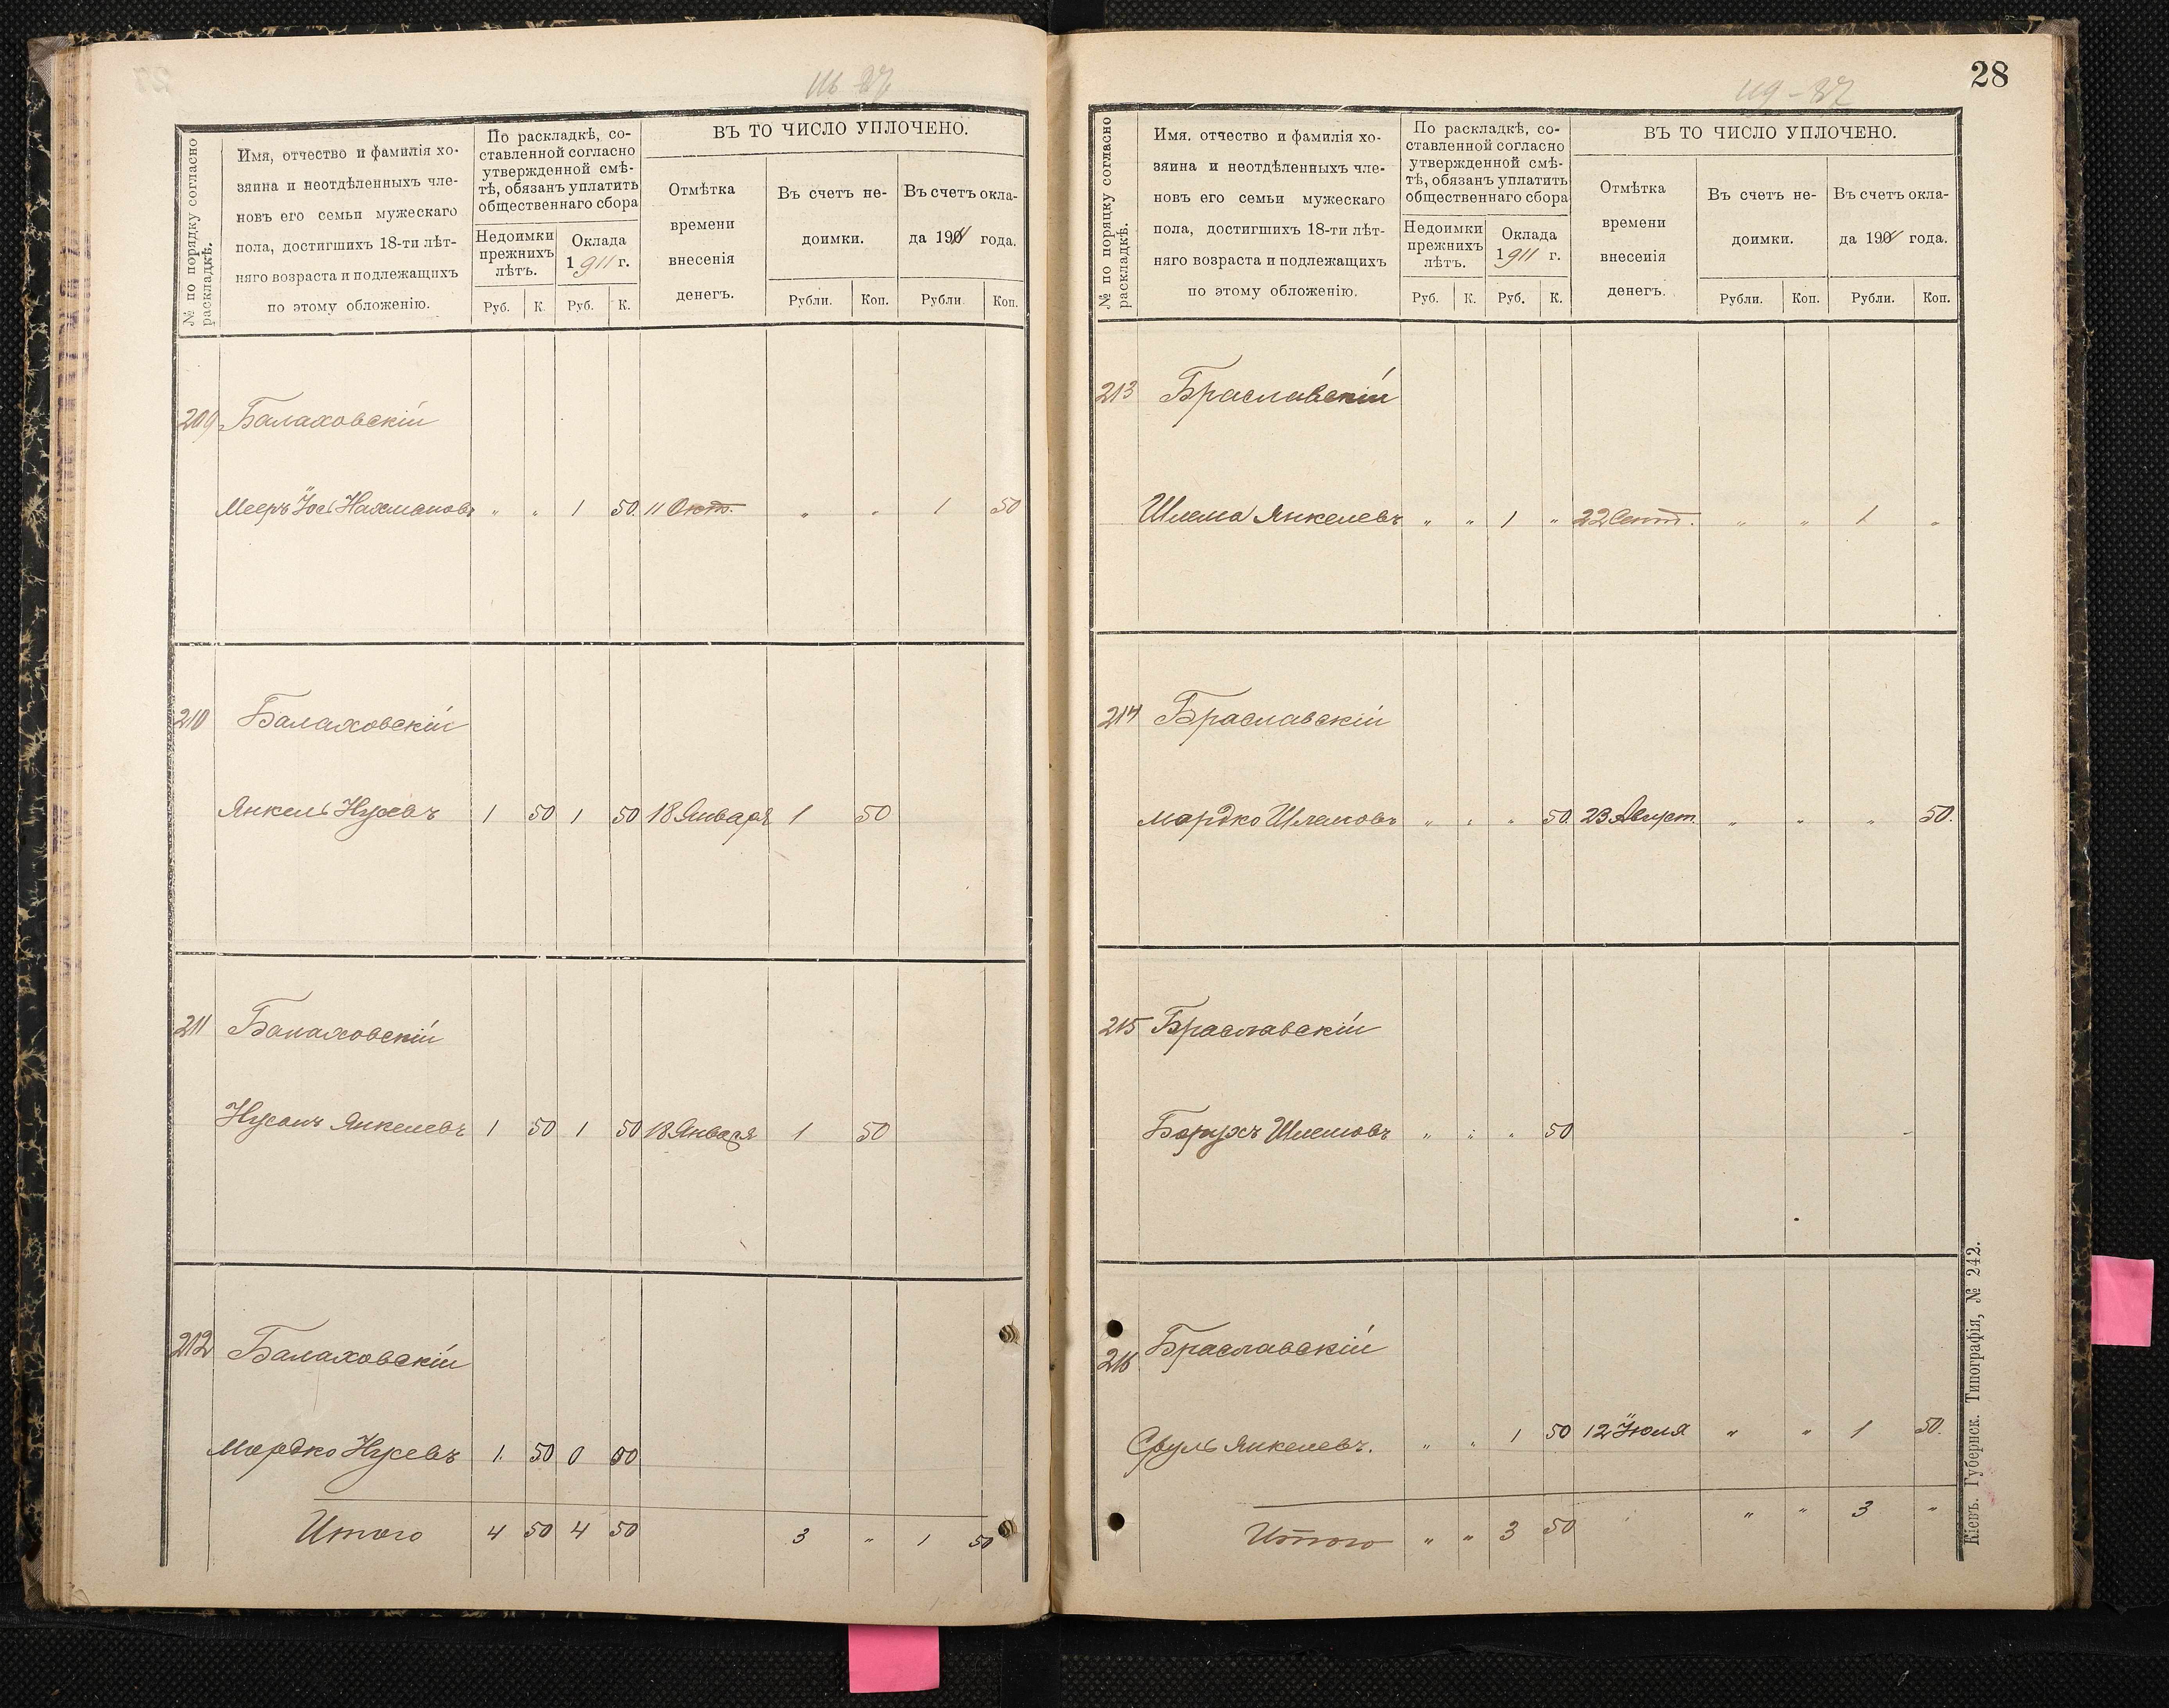 28
№ по порядку согласно
раскладкѣ.
Имя, отчество и фамилія хо-
зяина и неотдѣленныхъ чле-
новъ его семьи мужескаго
пола, достигшихъ 18-ти лѣт-
няго возраста и подлежащихъ
по этому обложенію.
По раскладкѣ, со-
ставленной согласно
утвержденной смѣ-
тѣ, обязанъ уплатить
общественнаго сбора
Недоимки
прежнихъ
лѣтъ.
Оклада
1911 г.
Руб. К. Руб. К.
ВЪ ТО ЧИСЛО УПЛОЧЕНО.
Отмѣтка
времени
внесенія
денегъ.
Въ счетъ не-
доимки.
Въ счетъ окла-
да 191 года.
Рубли. Коп. Рубли Коп.
209 Балаховскій
Мееръ Іос Нахмановъ " " 1 50 11 Окт. " " 1 50
210 Балаховскій
Янкель Нусевъ 1 50 1 50 18 Января 1 50
211 Балаховскій
Нусонъ Янкелевъ 1 50 1 50 18 Января 1 50
212 Балаховскій
Мордко Нусевъ 1. 50 0 00
Итого 4 50 4 50 3 " 1 50
119-87
№ по порядку согласно
раскладкѣ.
Имя. отчество и фамилія хо-
зяина и неотдѣленныхъ чле-
новъ его семьи мужескаго
пола, достигшихъ 18-ти лѣт-
няго возраста и подлежащихъ
по этому обложенію.
По раскладкѣ, со-
ставленной согласно
утвержденной смѣ-
тѣ, обязанъ уплатить
общественнаго сбора
Недоимки
прежнихъ
лѣтъ.
Оклада
1911 г.
Руб. К. Руб. К.
ВЪ ТО ЧИСЛО УПЛОЧЕНО.
Отмѣтка
времени
внесенія
денегъ.
Въ счетъ не-
доимки.
Въ счетъ окла-
да 191 года.
Рубли. Коп. Рубли. Коп.
213 Браславскій
Шлема Янкелевъ " " 1 " 22 Сент. " " 1 "
214 Браславскій
Мордко Шлемовъ " " " 50 23 Август. " " " 50.
215 Браславскій
Борухъ Шлемовъ " " " 50
216 Браславскій
Сруль Янкелевъ. " " 1 50 12 Іюля " " 1 50.
Итого " " 3 50 " " 3 "
Кіевъ. Губернск. Типографія, № 242.